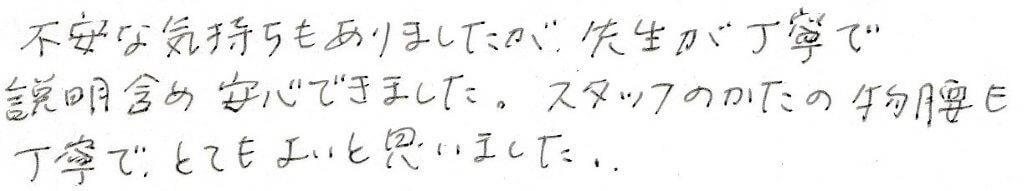 不安な気持ちもありましたが、先生が丁寧で
説明含め安心できました。スタッフのかたの物腰も
丁寧で、とてもよいと思いました..